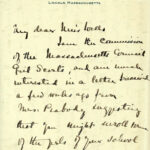 LINCOLN, MASSACHUSETTS
My dear Miss
I am the Commissioner
of the Massachusetts Council
Girl Scouts, and am much
interested in a letter received
a few weeks ago from
Mrs. Peabody suggesting
that you might enroll some
of the girls of your school